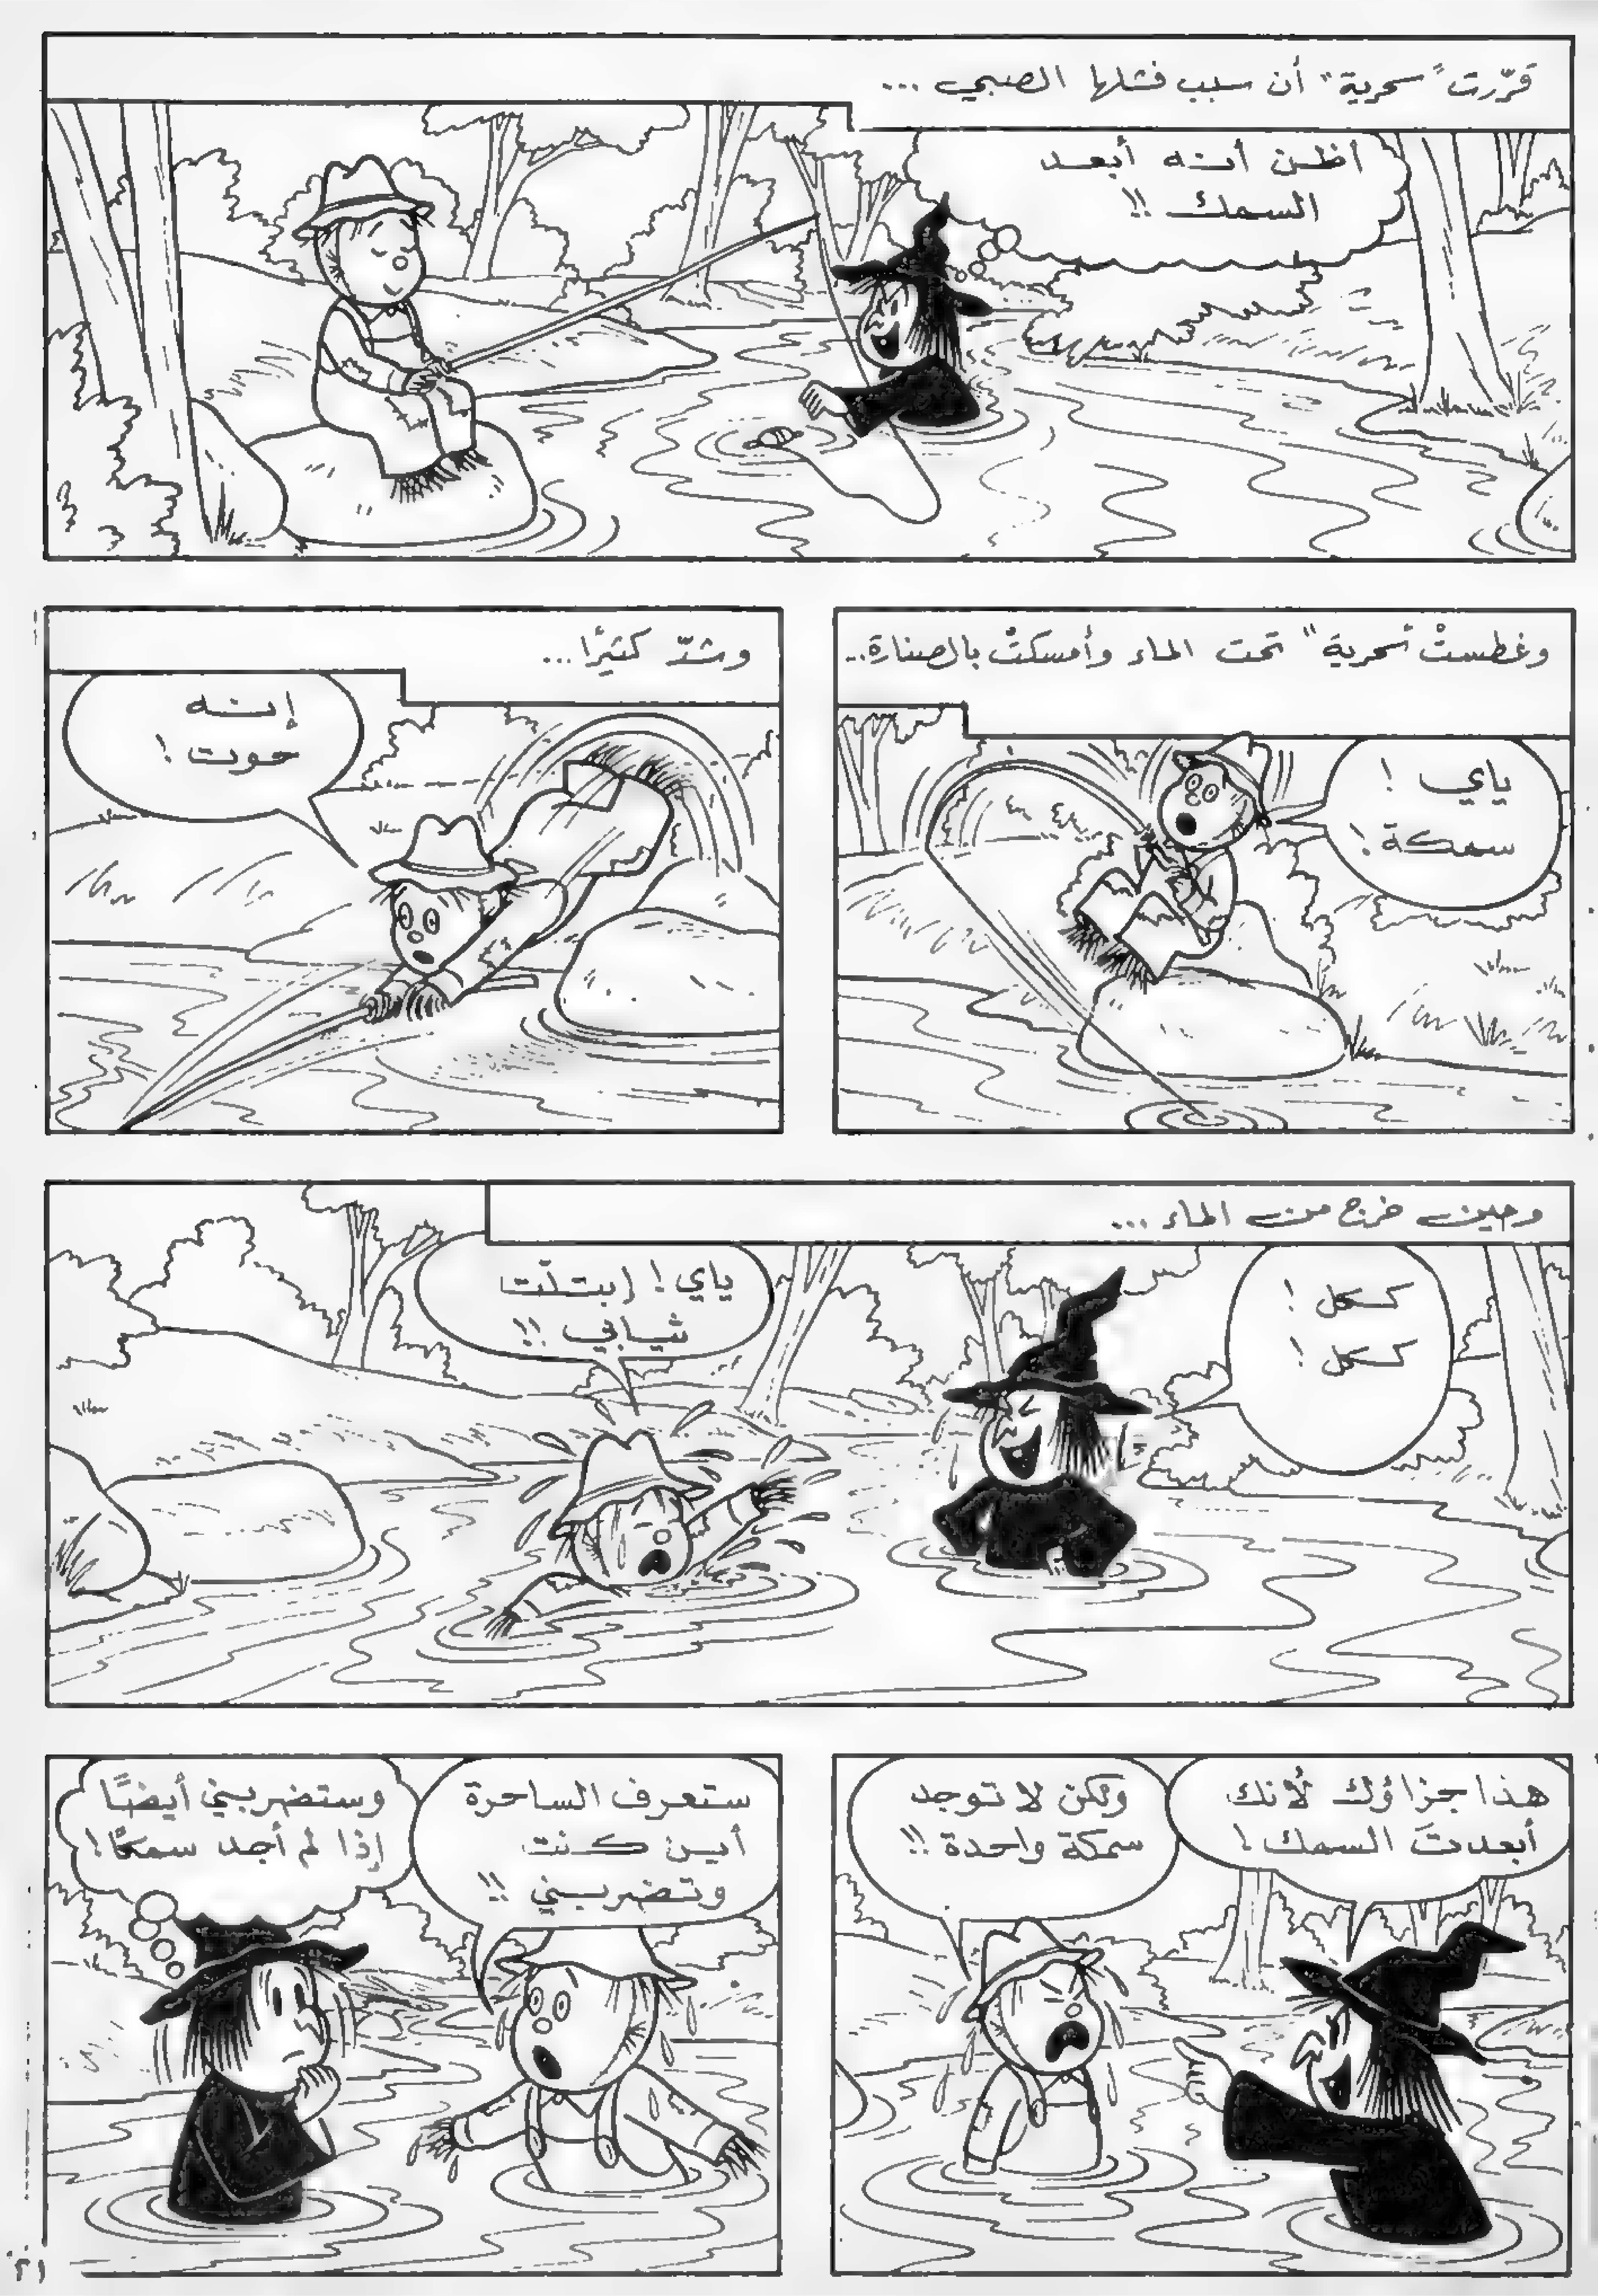 قرّرت "سحرية" أن سبب فشلها الصبي ...
أظن أنه أبعد
السمك !!
وغطستْ "سحرية" تحت الماء وأمسكتْ بالصنارة..
ياي !
سمكة !
وشدّ كثيرًا ...
إنه
حوت !
وحين خرج من الماء ...
ككل !
ككل !
ياي ! إبتلّت
ثيابي !!
هذا جزاؤك لأنك
أبعدتَ السمك !
ولكن لا توجد
سمكة واحدة !!
ستعرف الساحرة
أين كنت
وتضربني !!
وستضربني أيضًا
إذا لم أجد سمكًا !
٢١